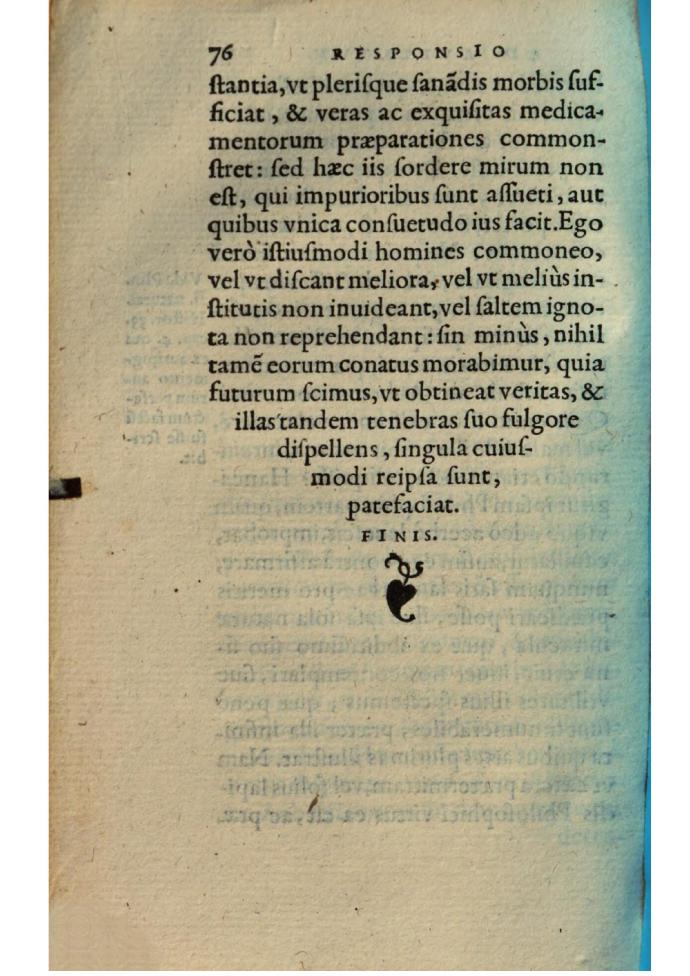 76 RESPONSIO
ſtantia, vt pleriſque ſanādis morbis ſuf-
ficiat, & veras ac exquiſitas medica-
mentorum præparationes common-
ſtret: ſed hæc iis ſordere mirum non
eſt, qui impurioribus ſunt aſſueti, aut
quibus vnica conſuetudo ius facit. Ego
verò iſtiuſmodi homines commoneo,
vel vt diſcant meliora, vel vt meliùs in-
ſtitutis non inuideant, vel ſaltem igno-
ta non reprehendant: ſin minùs, nihil
tamē eorum conatus morabimur, quia
futurum ſcimus, vt obtineat veritas, &
illas tandem tenebras ſuo fulgore
diſpellens, ſingula cuiuſ-
modi reipſa ſunt,
patefaciat.
FINIS.